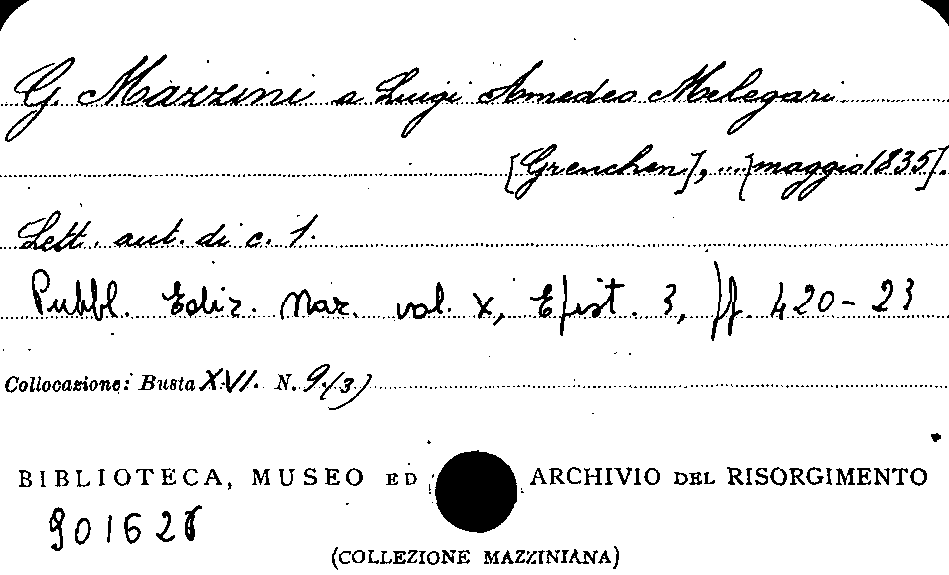 G. Mazzini a Luigi Amedeo Melegari.
[Grenchen], ... [maggio 1835].
Lett. aut. di c. 1.
Pubbl. Ediz. Naz. vol. X, Epist. 3, pp. 420-23
Collocazione: Busta XVI. N. 9.(3)
BIBLIOTECA, MUSEO ED ARCHIVIO DEL RISORGIMENTO
(COLLEZIONE MAZZINIANA)